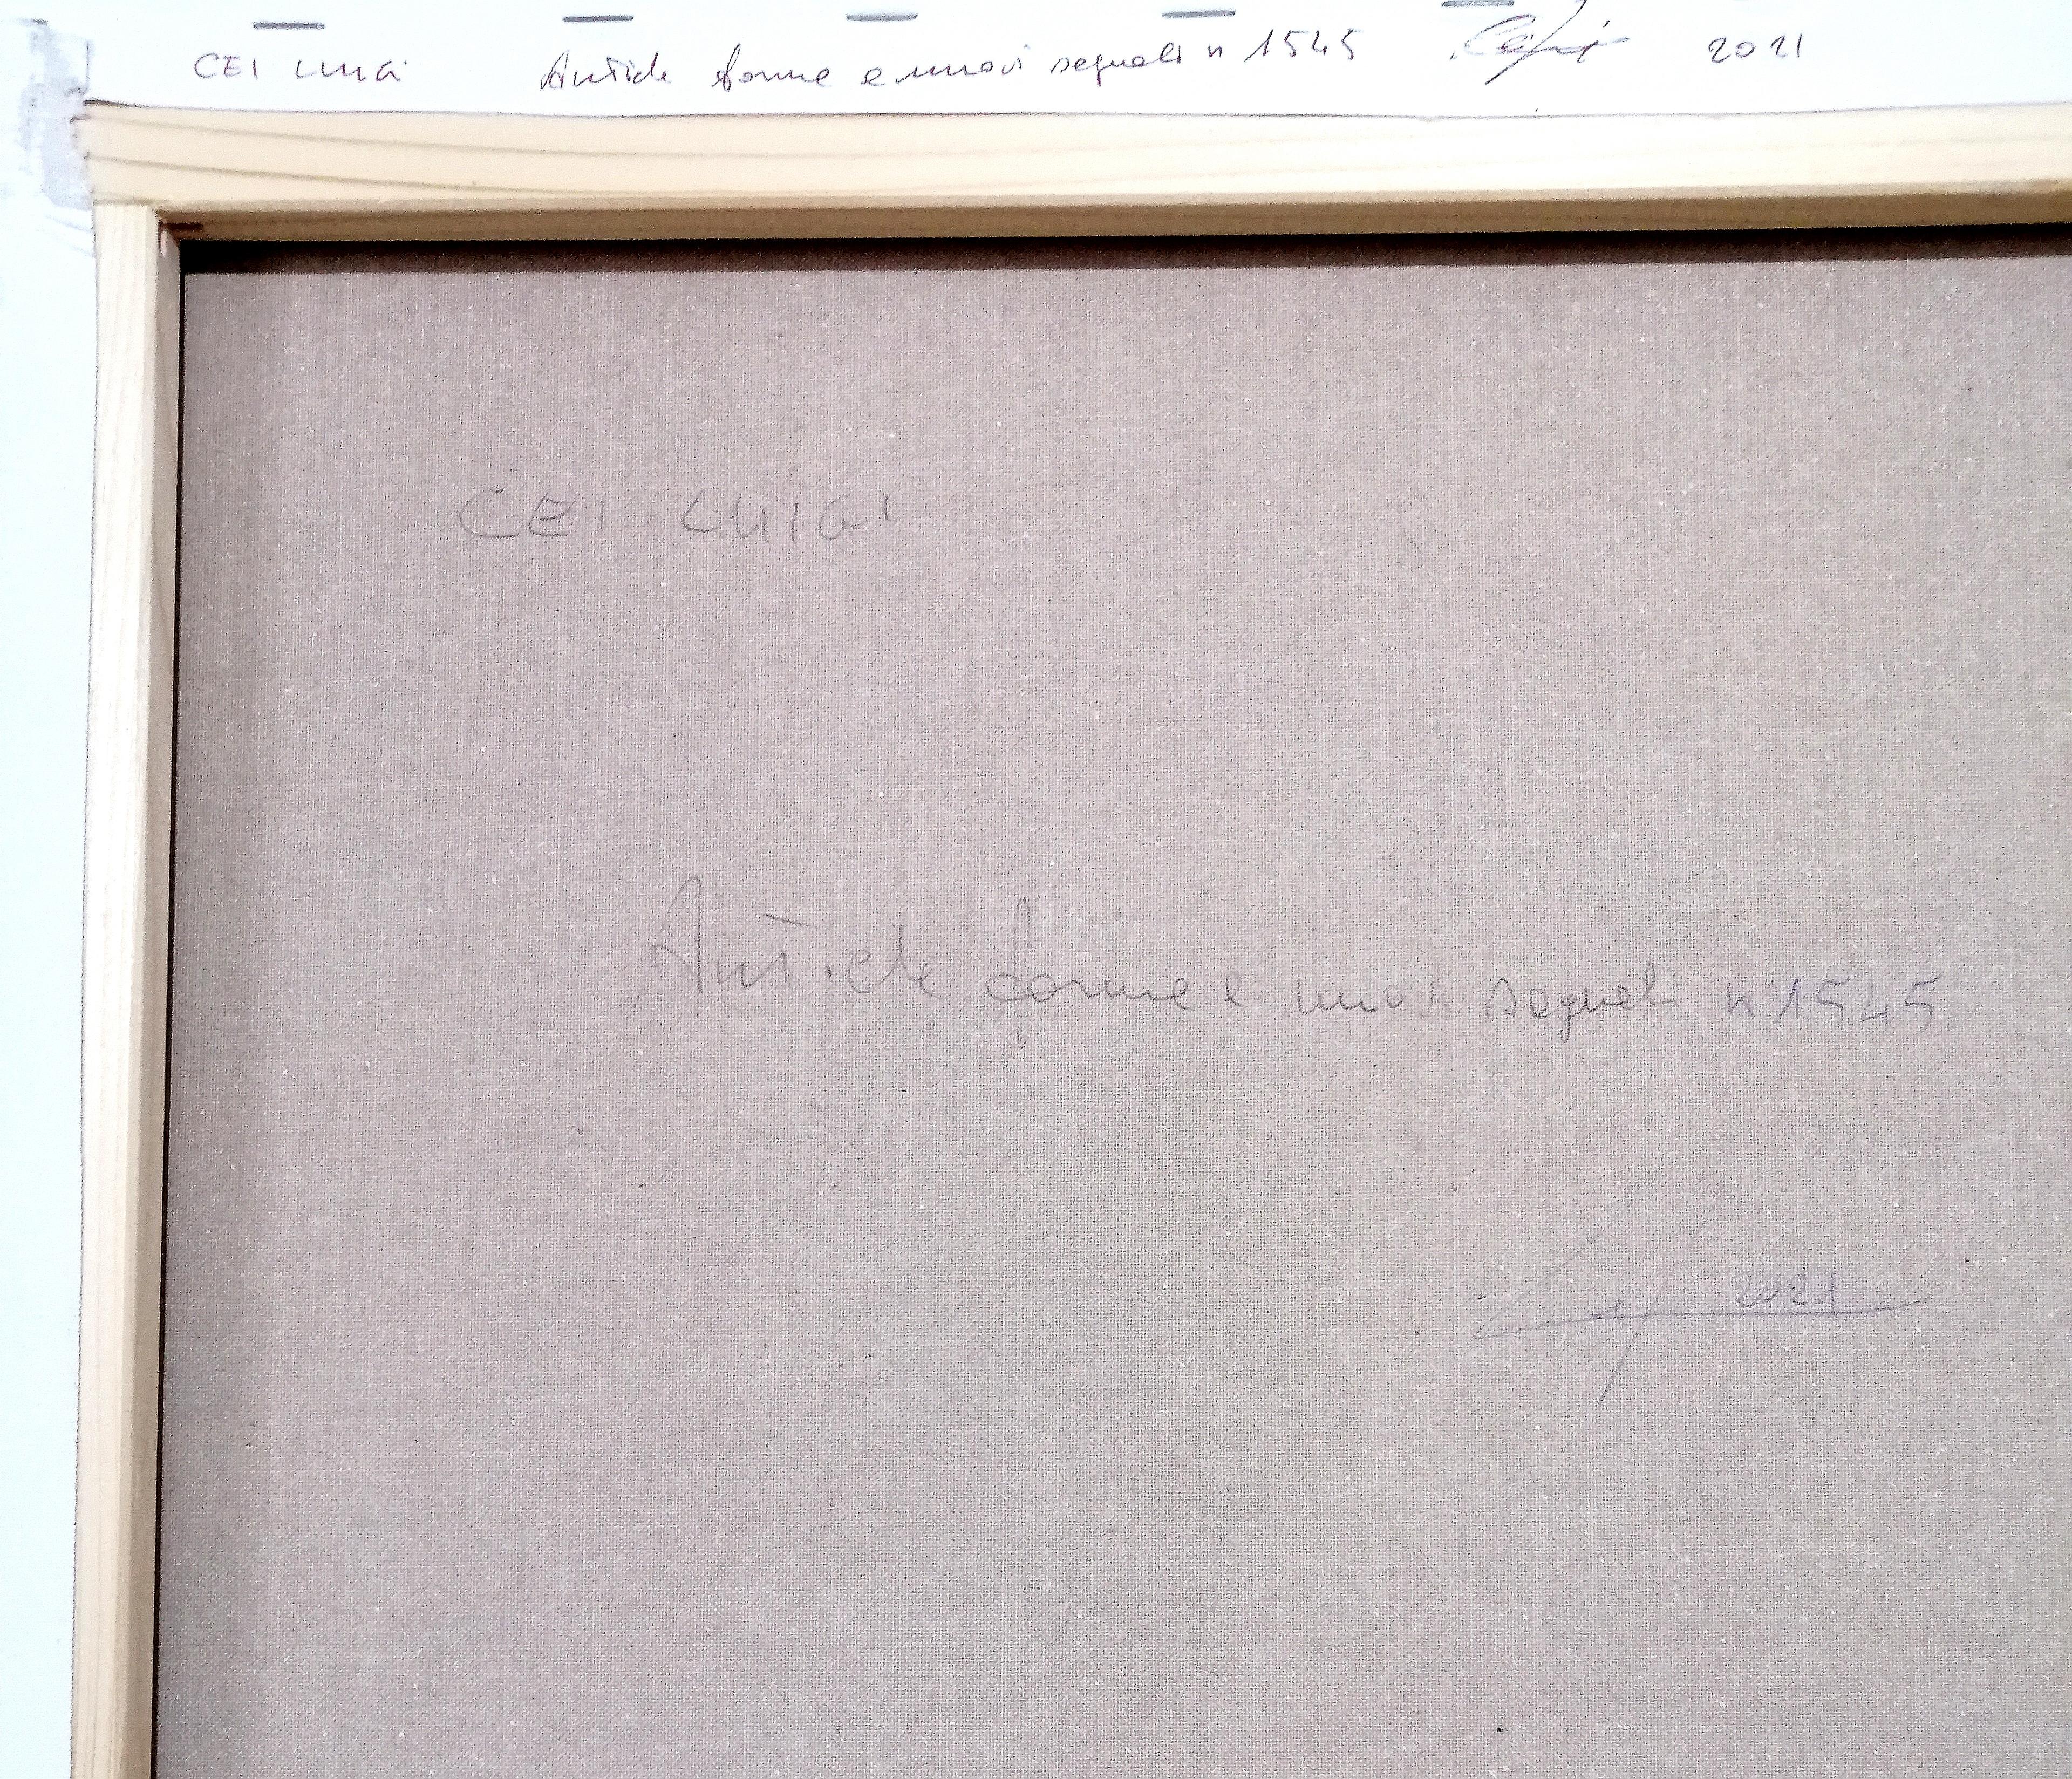 CEI LUIGI Antiche forme e nuovi segnali n 1545 2021
CEI LUIGI
Antiche forme e nuovi segnali n 1545
2021